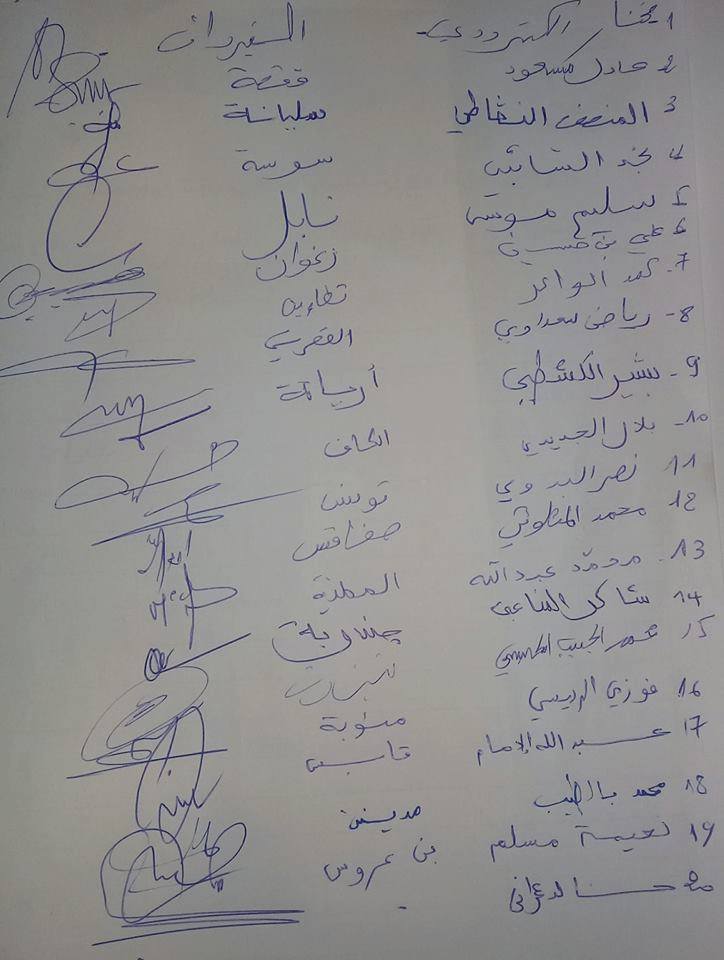 1 الكترودي القيروان
2 عادل مسعود قفصة
3 المنصف الشقاطي سليانة
4 محمد الشائبي سوسة
5 سليم موسى نابل
6 علي بن حسين زغوان
7 محمد الواعر تطاوين
8- رياض سعداوي القصرين
9- بشير الكشطبي أريانة
10- بلال الحديدي الكاف
11 نصر البدوي تونس
12 محمد المثلوثي صفاقس
13- محمد عبد الله المهدية
14 شاكر المناعي جندوبة
15 محمد الحبيب
16- فوزي منوبة
17 عبد الله الإمام قابس
18 محمد بالطيب مدنين
19 نعيمة مسلم بن عروس
20